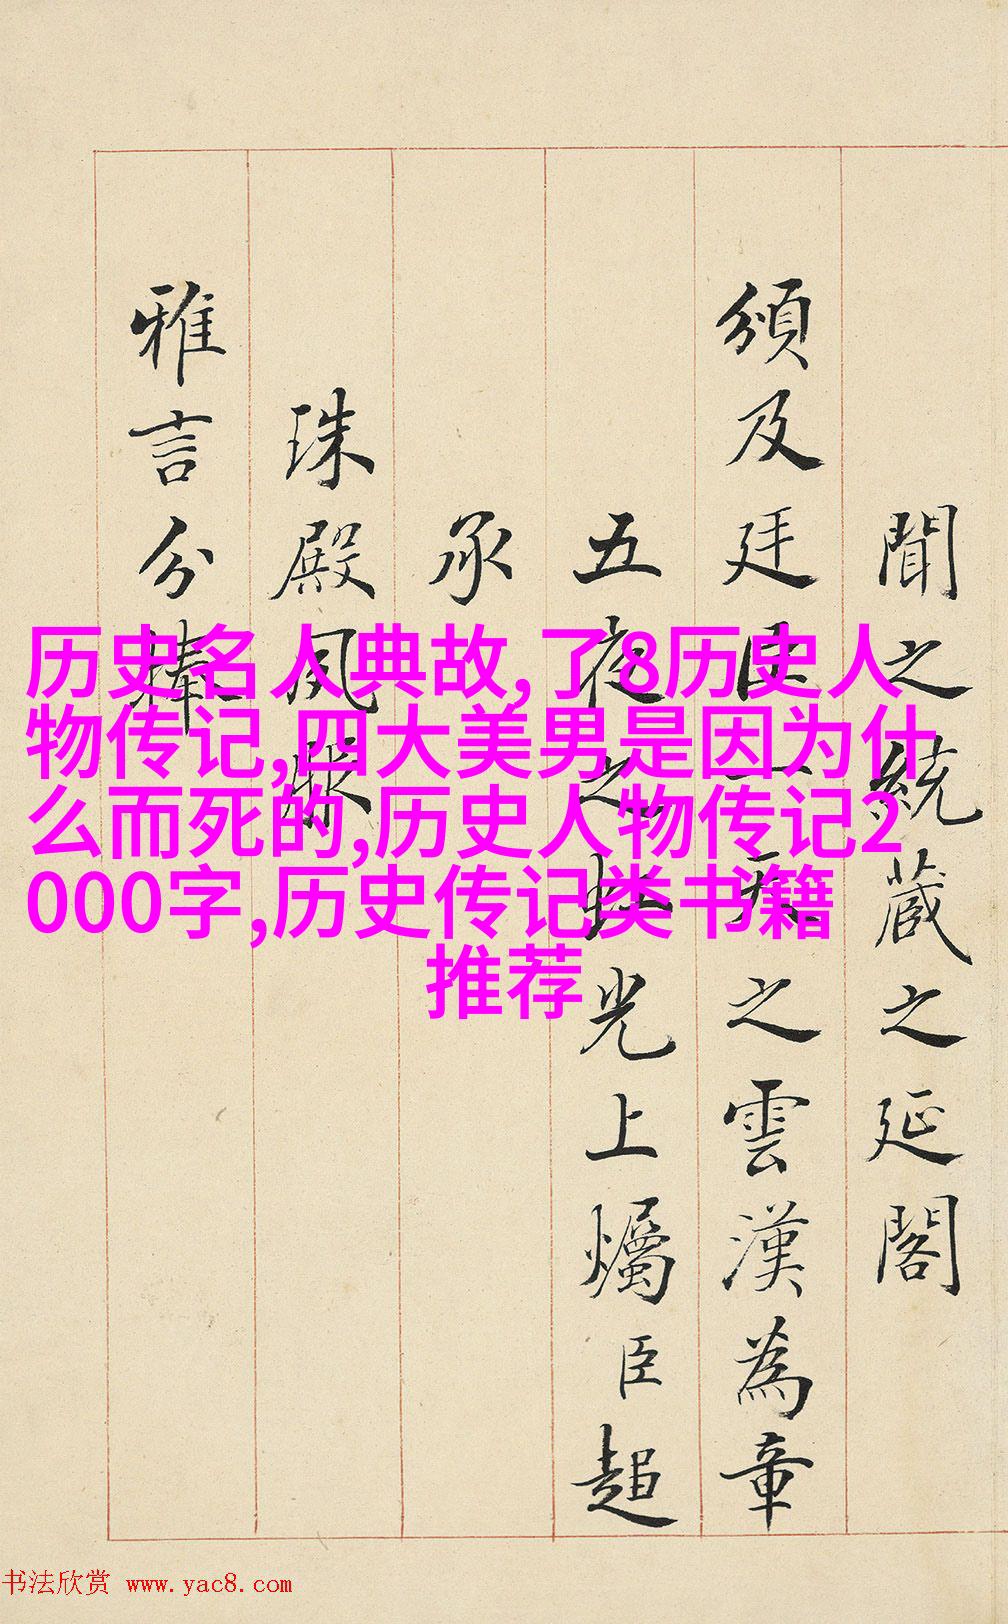 聞之統藏之延閣
頒及廷臣一天之雲漢為章
五夜之虹光上燭臣超
承
珠殿夙
雅言分捧
历史名人典故,了8历史人
物传记,四大美男是因为什
么而死的,历史人物传记2
000字,历史传记类书籍
推荐
书法欣赏 www.yac8.com